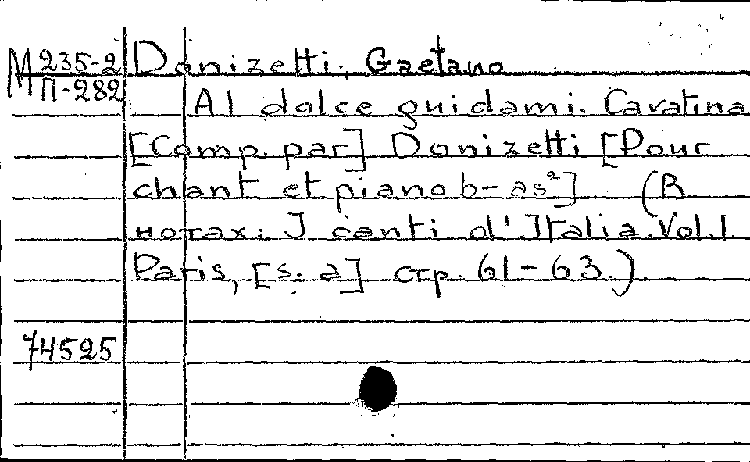 М 235-2
П-282
Donizetti, Gaetano
Al dolce guidami. Cavatina
[Comp. par] Donizetti [Pour
chant et piano b-as²] (В
нотах: I canti d'Italia. Vol. 1
Paris, [s. a] стр. 61-63.)
74525